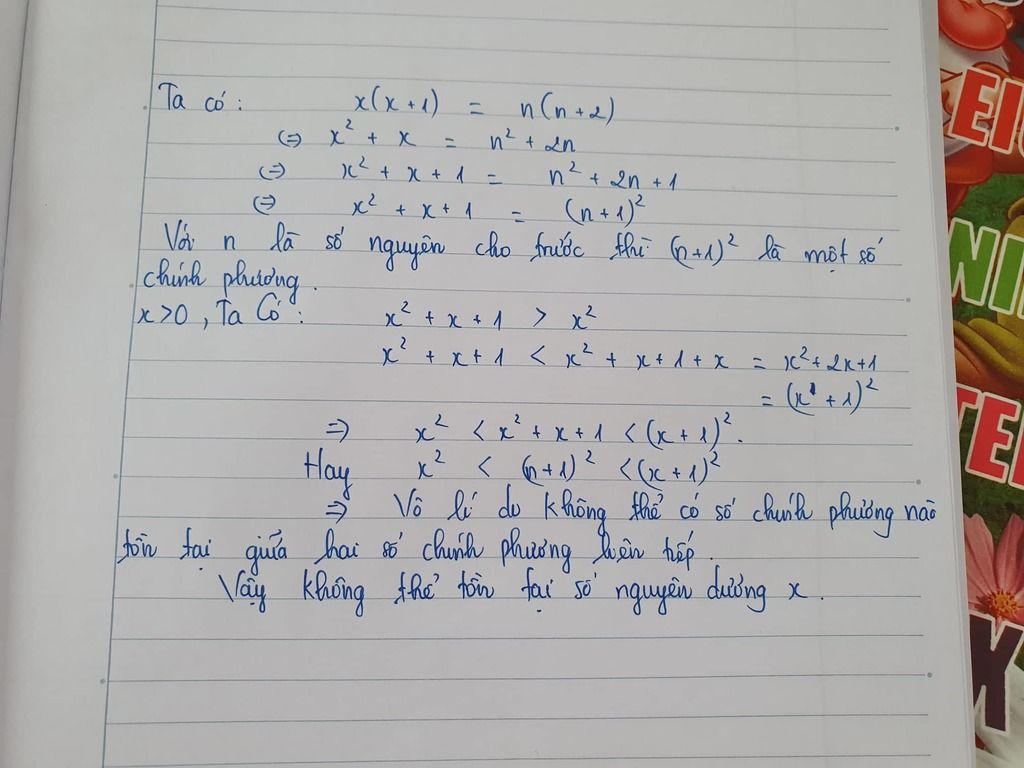 Ta có: x(x+1) = n(n+2)
(=) x² + x = n² + 2n
(=) x² + x + 1 = n² + 2n + 1
(=) x² + x + 1 = (n+1)²
Với n là số nguyên cho trước thì (n+1)² là một số
chính phương.
x>0, Ta Có: x² + x + 1 > x²
x² + x + 1 < x² + x + 1 + x = x² + 2x + 1
= (x + 1)²
=) x² < x² + x + 1 < (x + 1)².
Hay x² < (n+1)² < (x+1)²
=) Vô lí do không thể có số chính phương nào
tồn tại giữa hai số chính phương liên tiếp.
Vậy không thể tồn tại số nguyên dương x.
EI
NI
TE
X